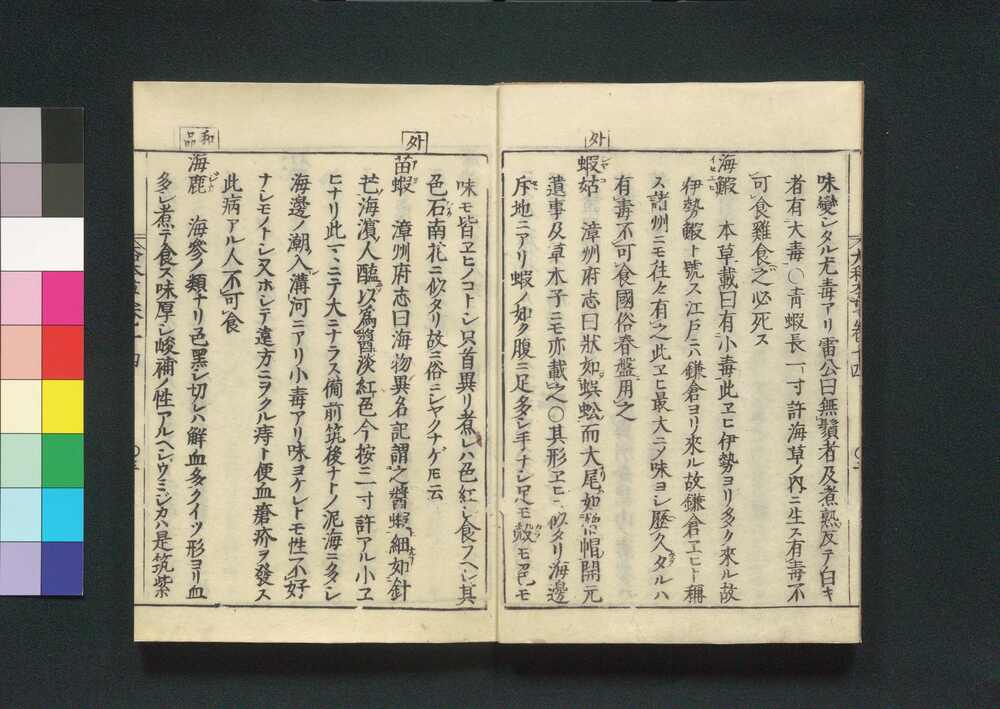 味變シタル尤毒アリ雷公曰無鬚者及煮熟反テ白キ
者有大毒○青蝦長一寸許海草ノ内ニ生ス有毒不
可食雞食之必死ス
海鰕 本草載曰有小毒此ヱヒ伊勢ヨリ多ク來ル故
伊勢鰕ト號ス江戸ニハ鎌倉ヨリ來ル故鎌倉ヱヒト稱
ス諸州ニモ往々有之此ヱヒ最大ニノ味ヨシ歴久タルハ
有毒不可食國俗春盤用之
外
蝦姑 漳州府志曰狀如蜈蚣而大尾如僧帽開元
遺事及草木子ニモ亦載之○其形ヱヒニ似タリ海邊
斥地ニアリ蝦ノ如ク腹ニ足多シ手ノナシ足モ殻モ色モ
味モ皆ヱヒノコトシ只首異リ煮レハ色紅シ食フヘシ其
色石南花ニ似タリ故ニ俗ニシヤクナゲトモ云
外
苗蝦 漳州府志曰海物異名記謂之醬蝦細如針
芒海濱人醢以爲醬淡紅色今按ニ一寸許アル小ヱ
ヒナリ此マヽニテ大ニナラス備前筑後ナトノ泥海ニ多シ
海邊ノ潮入溝河ニアリ小毒アリ味ヨケレトモ性不好
ナシモノトシ又ホシテ遠方ニヲクル痔ト便血瘡疥ヲ發ス
此病アル人不可食
和品
海鹿 海參ノ類ナリ色黑シ切レハ鮮血多クイツ形ヨリ血
多シ煮テ食ス味厚シ峻補ノ性アルヘシウミシカハ是筑紫